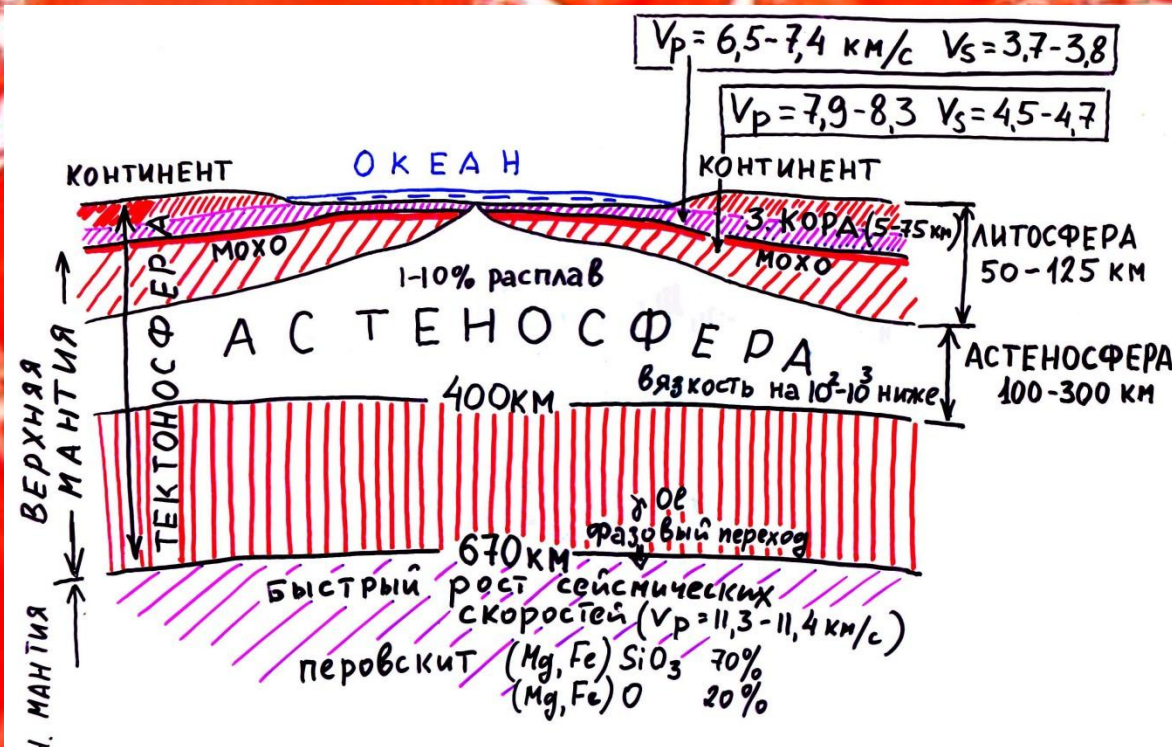 Vp = 6,5-7,4 км/с Vs = 3,7-3,8
Vp = 7,9-8,3 Vs = 4,5-4,7
КОНТИНЕНТ
ОКЕАН
КОНТИНЕНТ
З. КОРА (5-75 км)
МОХО
МОХО
ЛИТОСФЕРА
50-125 КМ
1-10% расплав
АСТЕНОСФЕРА
вязкость на 10²-10³ ниже
АСТЕНОСФЕРА
100-300 КМ
400КМ
ВЕРХНЯЯ
МАНТИЯ
ТЕКТОНОСФЕРА
γOl
Фазовый переход
670КМ
Быстрый рост сейсмических
скоростей (Vp = 11,3-11,4 км/с)
перовскит (Mg, Fe) SiO₃ 70%
(Mg, Fe) O 20%
Н. МАНТИЯ